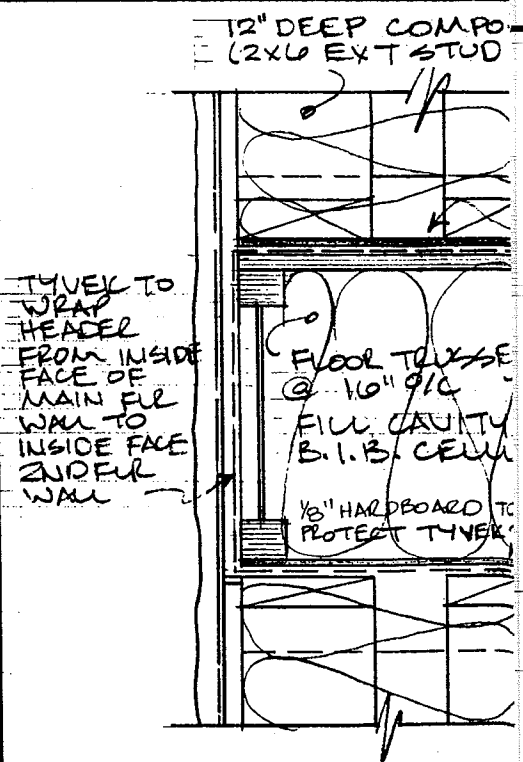 12" DEEP COMPO
(2X6 EXT STUD
TYVEK TO
WRAP
HEADER
FROM INSIDE
FACE OF
MAIN FLR
WALL TO
INSIDE FACE
2ND FLR
WALL
FLOOR TRUSSE
@ 16" O/C
FILL CAVITY
B.I.B. CELL
1/8" HARDBOARD TO
PROTECT TYVEK